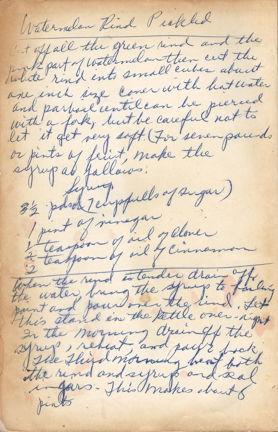 Watermelon Rind Pickled
Cut off all the green rind and the
pink part of watermelon then cut the
white rind into small cubes about
one inch size cover with hot water
and parboil until can be pierced
with a fork, but be careful not to
let it get very soft. (For seven pounds
or pints of fruit, make the
syrup as follows.
Syrup
3½ (7 cupfulls of sugar)
1 pint of vinegar
½ teaspoon of oil of clover
½ teaspoon of oil of cinnamon
When the rind is tender drain off
the water, bring the syrup to boiling
point and pour over the rind. Let
this stand in the kettle over-night
In the morning drain off the
syrup, reheat, and pour back,
The Third morning heat both
the rind and syrup and seal
in jars. This makes about 8
pints